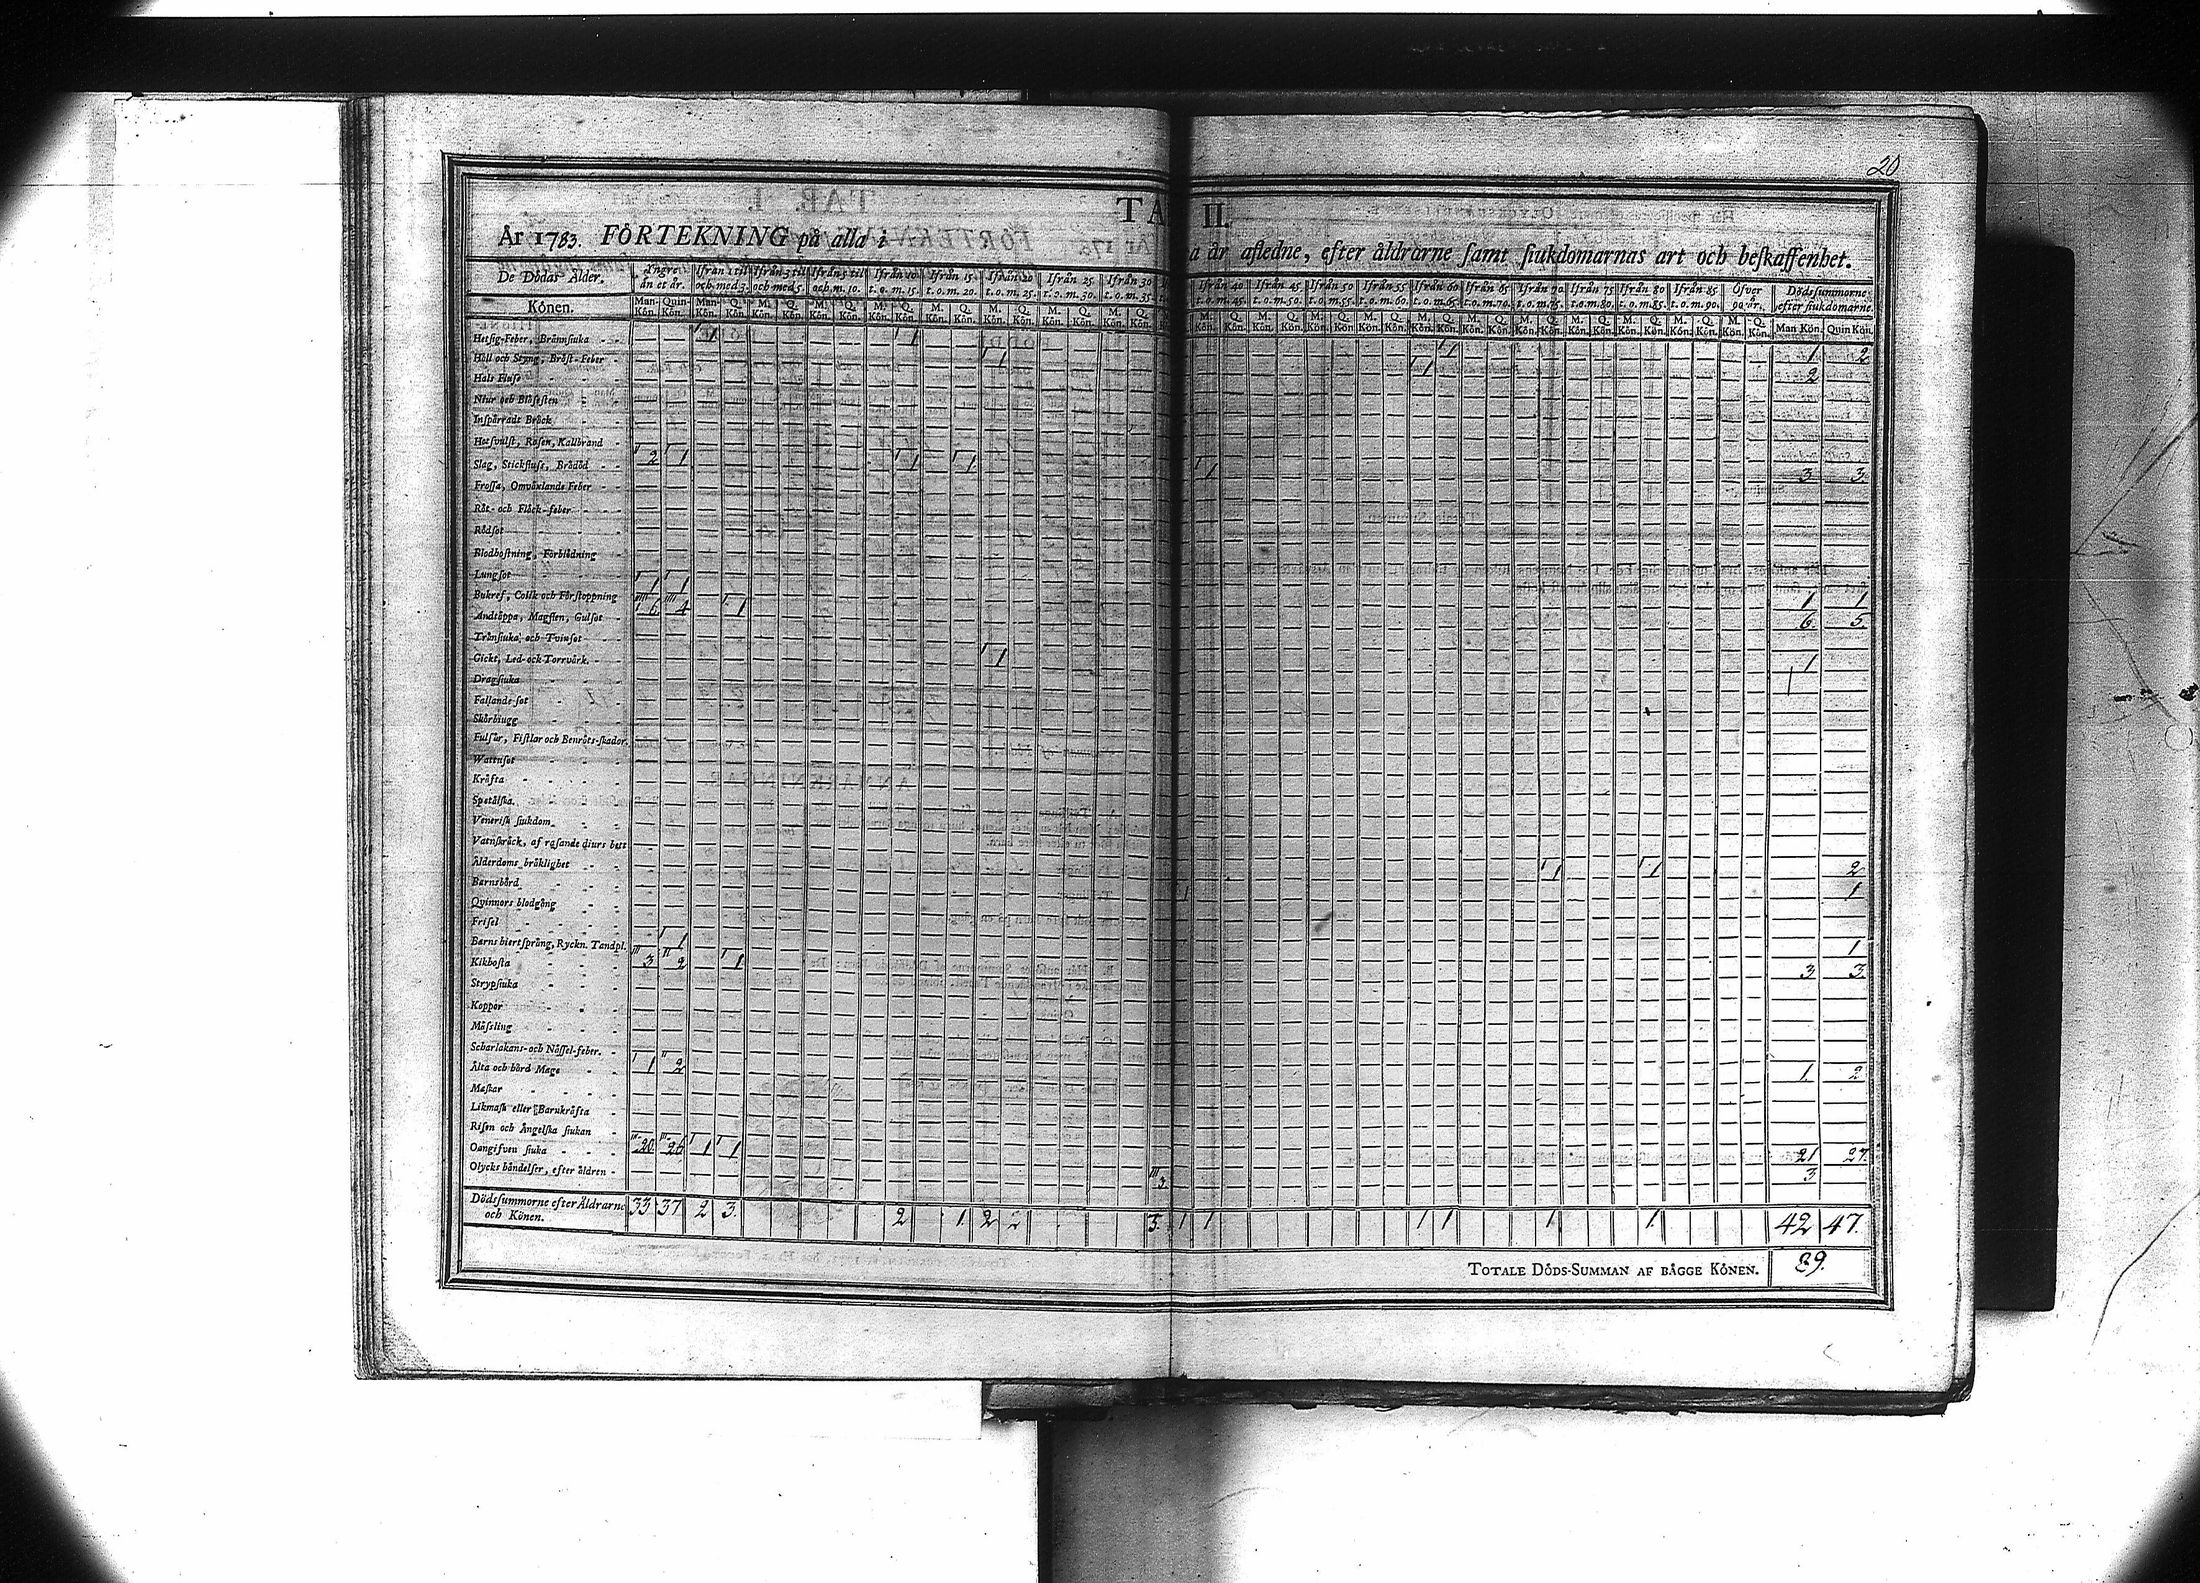 20
TA II.
År 1783. FÖRTEKNING på alla i a år afledne, efter åldrarne samt siukdomarnas art och beskaffenhet.
De Dödas Ålder. Yngre än et år. Ifrån 1 til och med 3. Ifrån 3 til och med 5. Ifrån 5 til och m. 10. Ifrån 10 t. o. m. 15. Ifrån 15 t. o. m. 20. Ifrån 20 t. o. m. 25. Ifrån 25 t. o. m. 30. Ifrån 30 t. o. m. 35. Ifrån 40 t. o. m. 45. Ifrån 45 t. o. m. 50. Ifrån 50 t. o. m. 55. Ifrån 55 t. o. m. 60. Ifrån 60 t. o. m. 65. Ifrån 65 t. o. m. 70. Ifrån 70 t. o. m. 75. Ifrån 75 t. o. m. 80. Ifrån 80 t. o. m. 85. Ifrån 85 t. o. m. 90. Öfver 90 år. Dödssummorne efter siukdomarne.
Könen. Man-Kön. Quin-Kön. Man-Kön. Q. Kön. M. Kön. Q. Kön. M. Kön. Q. Kön. Man Kön. Quin Kön.
Hetsig-Feber, Brännsiuka 1 1 1 1 2
Håll och Styng, Bröst-Feber 1 1 2
Hals Fluss
Niur och Blåsesten
Inspärradt Bråck
Hetsvulst, Rosen, Kallbrand
Slag, Stickfluss, Brådöd 2 1 1 1 1 3 3.
Frossa, Omväxlande Feber
Röt- och Fläck-feber
Rödsot
Blodhostning, Förblödning
Lungsot
Bukref, Colik och Förstoppning 1 1 1 1
Andtäppa, Magsten, Gulsot 6 4 1 6. 5.
Trånsiuka och Tvinsot
Gickt, Led- och Torrvärk. 1 1
Dragsiuka
Fallande-sot
Skörbiugg
Fulslår, Fistlar och Benröts-skador.
Wattusot
Kräfta
Spetälska.
Venerisk siukdom
Vatnskräck, af rasande diurs bett
Ålderdoms bräklighet 1 1 2
Barnsbörd 1 1
Qvinnors blodgång
Frisel
Barns hiertsprång, Ryckn. Tandpl. 1 1
Kikhosta 3 2 1 3 3.
Strypsiuka
Koppor
Mässling
Scharlakans- och Nässel-feber.
Älta och hård Mage 1 2 1. 2
Maskar
Likmask eller Barnkräfta
Risen och Ångelska siukan
Oangifven siuka 20. 26 1 1 21 27.
Olycks händelser, efter åldren 3. 3
Dödssummorne efter Åldrarne och Könen. 33 37 2 3. 2 1. 2 3. 1 1 1 1 1 1. 42 47.
TOTALE DÖDS-SUMMAN AF BÄGGE KÖNEN. 89.